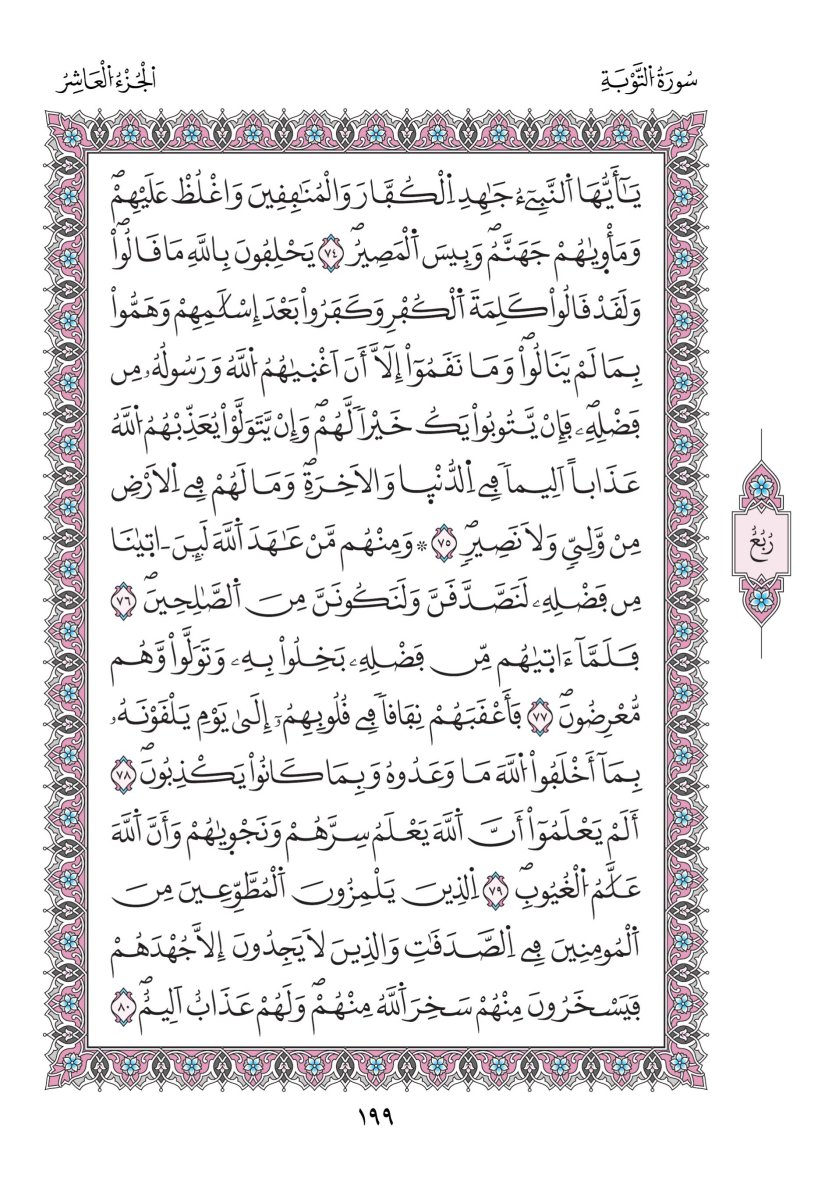 سُورَةُ التَّوْبَةِ
الْجُزْءُ الْعَاشِرُ
يَٰٓأَيُّهَا اَ۬لنَّبِےٓءُ جَٰهِدِ اِ۬لْكُفَّارَ وَالْمُنَٰفِقِينَ وَاغْلُظْ عَلَيْهِمْۖ
وَمَأْو۪يٰهُمْ جَهَنَّمُۖ وَبِيسَ اَ۬لْمَصِيرُۖ ٧٤ يَحْلِفُونَ بِاللَّهِ مَا قَالُواْۖ
وَلَقَدْ قَالُواْ كَلِمَةَ اَ۬لْكُفْرِ وَكَفَرُواْ بَعْدَ إِسْلَٰمِهِمْ وَهَمُّواْ
بِمَا لَمْ يَنَالُواْۖ وَمَا نَقَمُوٓاْ إِلَّآ أَنَ اَغْن۪يٰهُمُ اُ۬للَّهُ وَرَسُولُهُۥ مِن
فَضْلِهِۦۖ فَإِنْ يَّتُوبُواْ يَكُ خَيْراٗ لَّهُمْۖ وَإِنْ يَّتَوَلَّوْاْ يُعَذِّبْهُمُ اُ۬للَّهُ
عَذَاباً اَلِيماٗ فِے اِ۬لدُّنْي۪ا وَالَاخِرَةِۖ وَمَا لَهُمْ فِے اِ۬لَارْضِ
مِنْ وَّلِيّٖ وَلَا نَصِيرٖۖ ٧٥ ۞ وَمِنْهُم مَّنْ عَٰهَدَ اَ۬للَّهَ لَئِنَ اٰت۪يٰنَا
مِن فَضْلِهِۦ لَنَصَّدَّقَنَّ وَلَنَكُونَنَّ مِنَ اَ۬لصَّٰلِحِينَۖ ٧٦
فَلَمَّآ ءَات۪يٰهُم مِّن فَضْلِهِۦ بَخِلُواْ بِهِۦ وَتَوَلَّواْ وَّهُم
مُّعْرِضُونَۖ ٧٧ فَأَعْقَبَهُمْ نِفَاقاٗ فِے قُلُوبِهِمُۥٓ إِلَىٰ يَوْمِ يَلْقَوْنَهُۥ
بِمَآ أَخْلَفُواْ اُ۬للَّهَ مَا وَعَدُوهُ وَبِمَا كَانُواْ يَكْذِبُونَۖ ٧٨
أَلَمْ يَعْلَمُوٓاْ أَنَّ اَ۬للَّهَ يَعْلَمُ سِرَّهُمْ وَنَجْو۪يٰهُمْ وَأَنَّ اَ۬للَّهَ
عَلَّٰمُ اُ۬لْغُيُوبِۖ ٧٩ اِ۬لذِينَ يَلْمِزُونَ اَ۬لْمُطَّوِّعِينَ مِنَ
اَ۬لْمُومِنِينَ فِے اِ۬لصَّدَقَٰتِ وَالذِينَ لَا يَجِدُونَ إِلَّا جُهْدَهُمْ
فَيَسْخَرُونَ مِنْهُمْ سَخِرَ اَ۬للَّهُ مِنْهُمْۖ وَلَهُمْ عَذَابٌ اَلِيمٌۖ ٨٠
رُبُعٌ
١٩٩